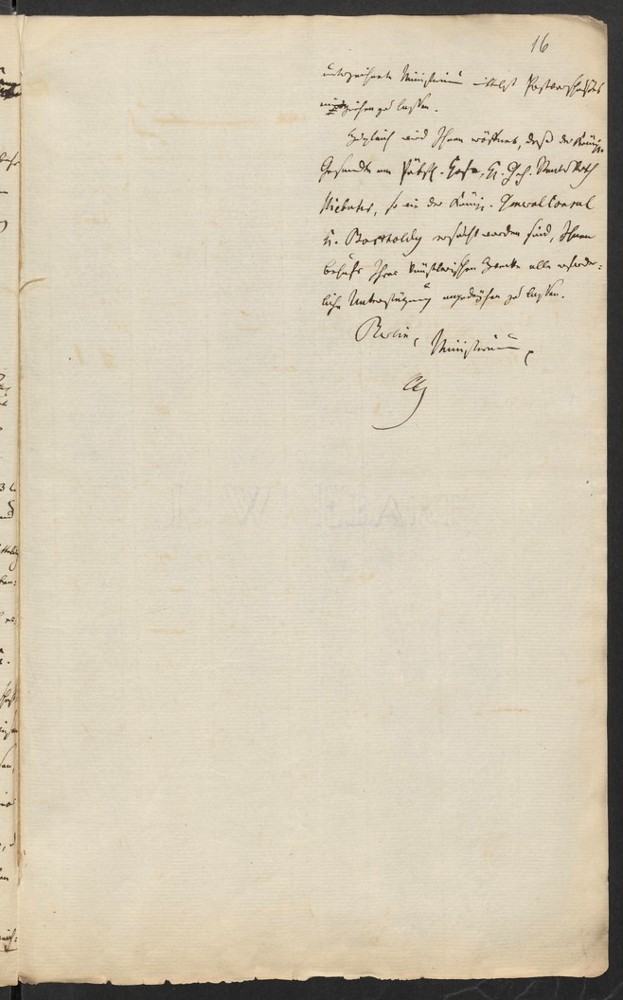 16
unterzeichnete Ministerium mittelst Postvorschusses
einziehen zu lassen.
Zugleich wird Ihnen eröffnet, daß der Königl.
Gesandte am Päbstl. Hofe, H. Geh. Staats Rath
Niebuhr, so wie der Königl. General Consul
H. Bartholdy ersucht worden sind, Ihnen
behufs Ihrer künstlerischen Zwecke alle erforder-
liche Unterstützung angedeihen zu lassen.
Berlin, Ministerium